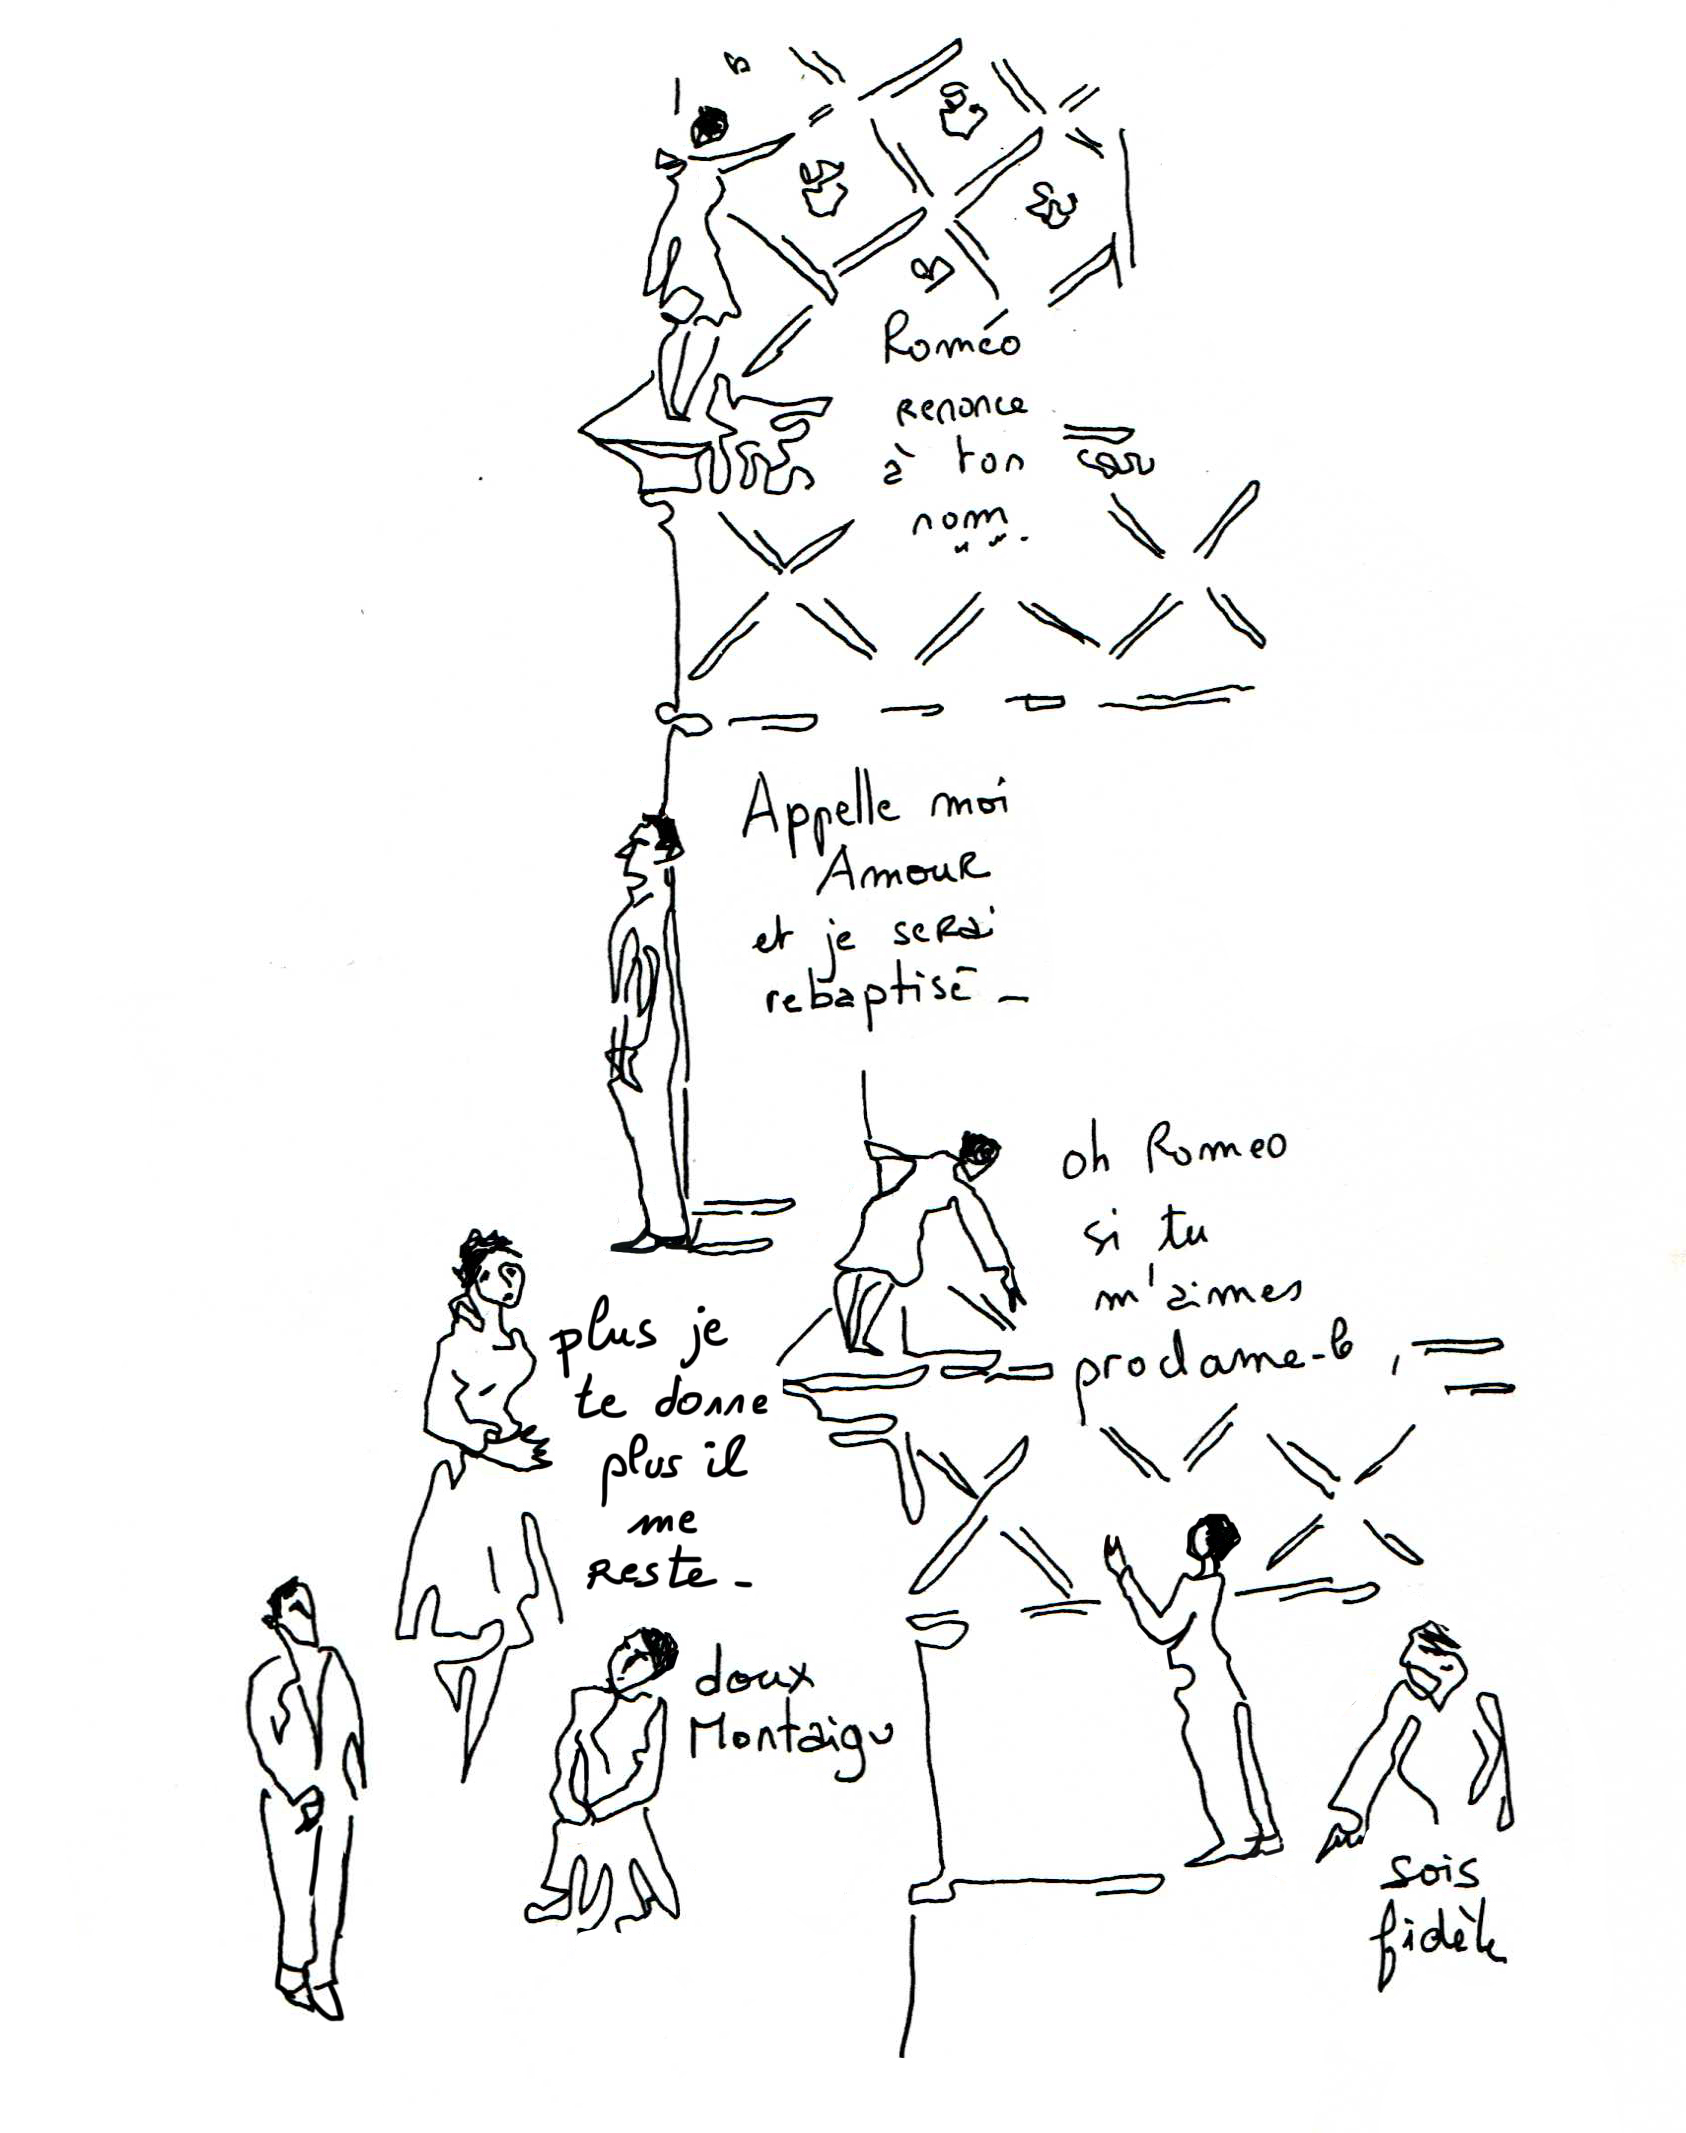 Roméo
renonce
à ton
nom...
Appelle moi
Amour
et je serai
rebaptisé _
oh Romeo
si tu
m'aimes
proclame-le,
plus je
te donne
plus il
me
reste _
doux
Montaigu
sois
fidèle